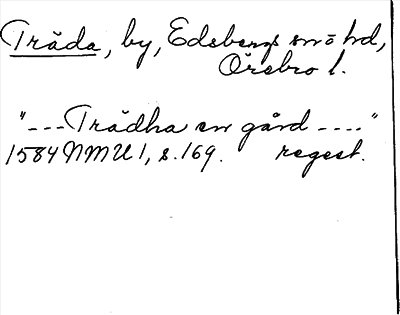 Träda, by, Edsbergs sn o hd,
Örebro l.
"---Trädha en gård ----"
1584 NMU 1, s. 169. regest.